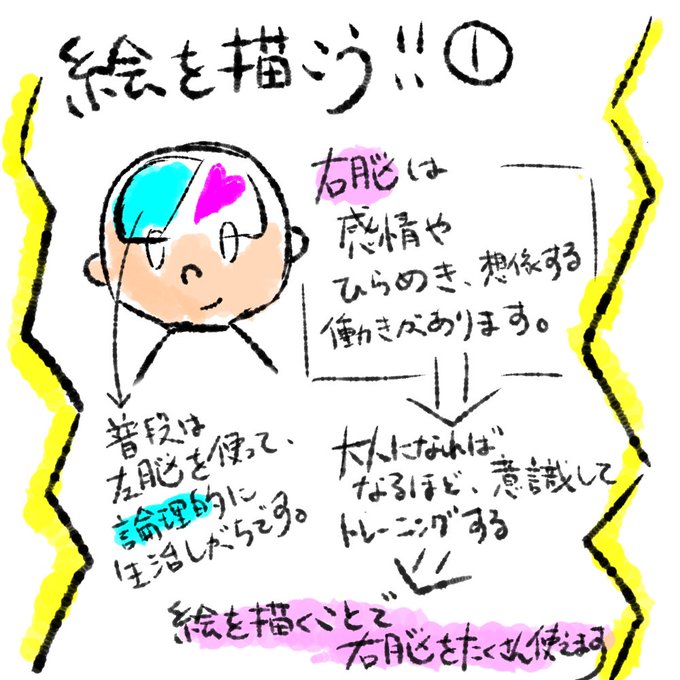 絵を描こう!!①
右脳は
感情や
ひらめき、想像する
働きがあります。
普段は
左脳を使って、
論理的に
生活しがちです。
大人になれば
なるほど、意識して
トレーニングする
絵を描くことで
右脳をたくさん使えます